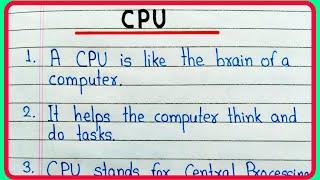 CPU
1. A CPU is like the brain of a
computer.
2. It helps the computer think and
do tasks.
3. CPU stands for Central Processing